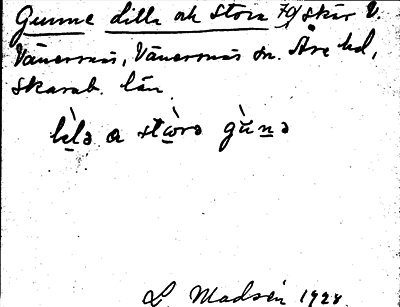 Gunne Lilla och Stora 70/ skär V.
Vänersnäs, Vänersnäs sn. Åse hd,
Skarab. län.
lìlə a stòrə gùnə
L. Modsén 1928.